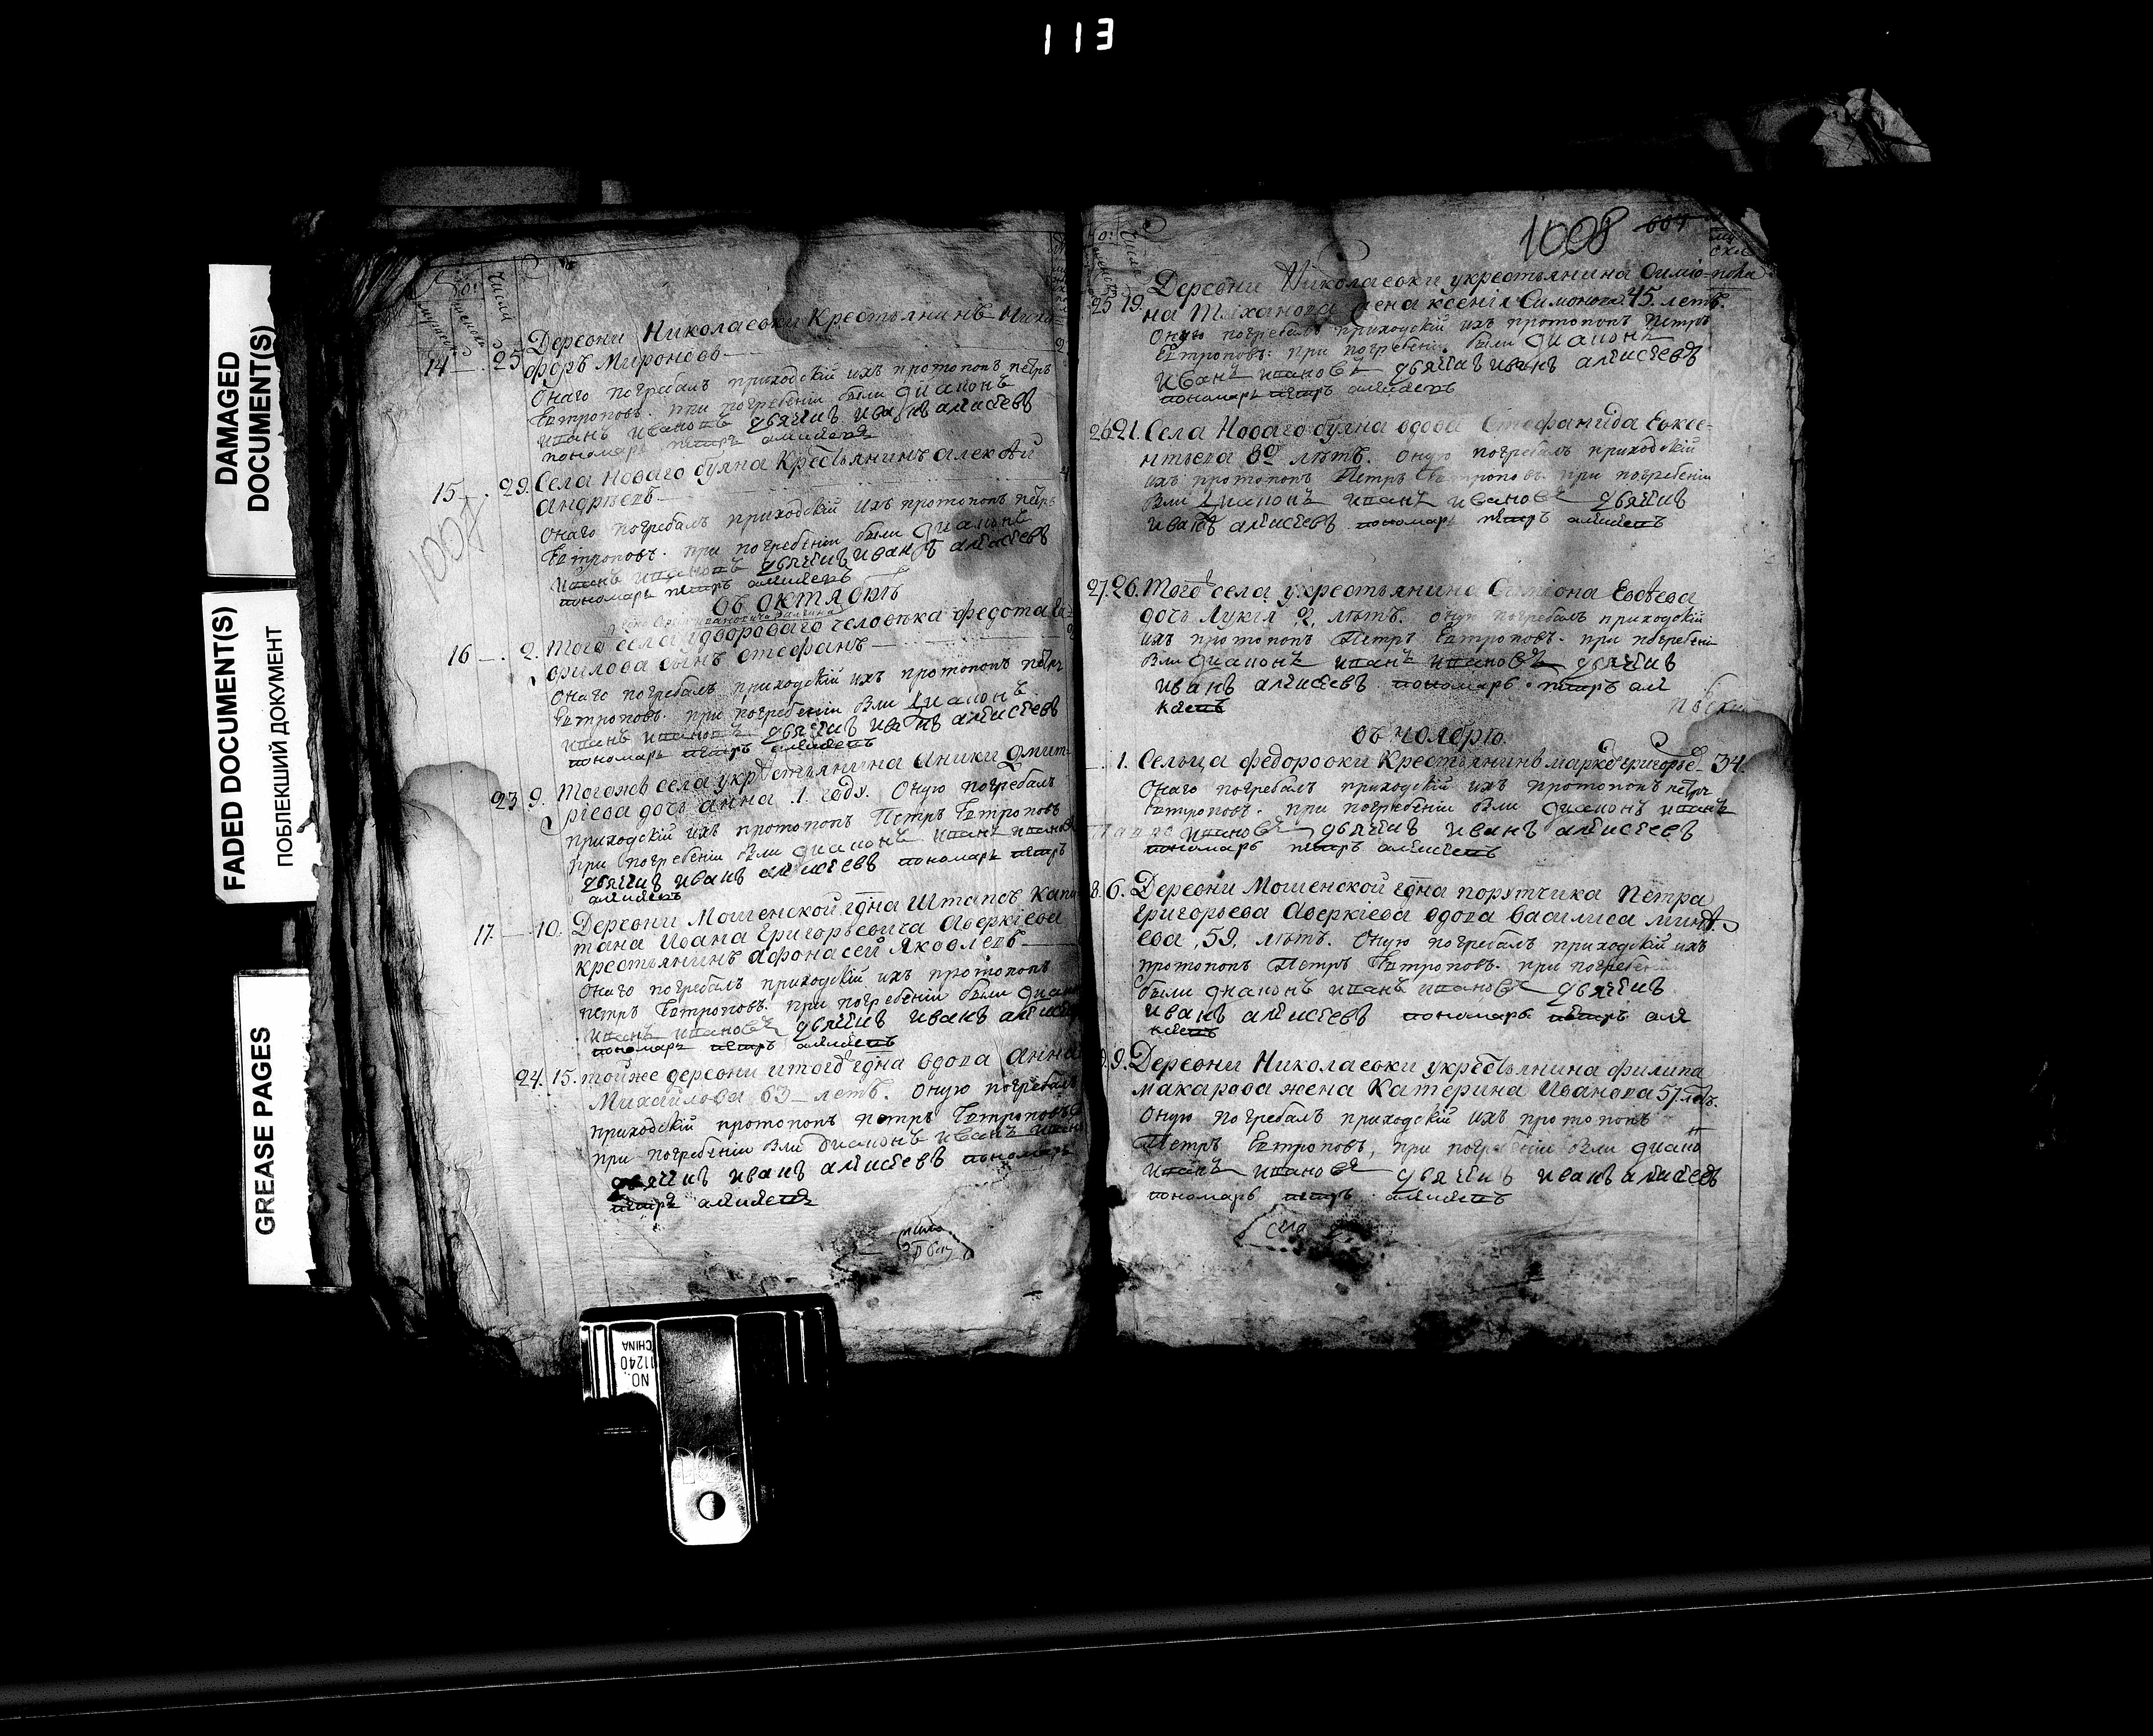 113
DAMAGED
DOCUMENT(S)
FADED DOCUMENT(S)
ПОБЛЕКШИЙ ДОКУМЕНТ
GREASE PAGES
числа
Деревни Николаевки Крестьянинъ Ники
14 25 форъ Мироновъ
Онаго погребалъ приходскій ихъ протопопъ петръ
Евтроповъ. при погребеніи были диаконъ
иванъ ивановъ дьячикъ иванъ алексеевъ
пономарь петръ алексеевъ
15 29. Села Новаго буяна Крестьянинъ алекѣй
андрѣевъ
1007
Онаго погребалъ приходскій ихъ протопопъ петръ
Евтроповъ. при погребеніи были диаконъ
иванъ ивановъ дьячикъ иванъ алексеевъ
пономарь петръ алексеевъ
въ октябрѣ
16 2. Того села удвороваго человѣка федота
филова сынъ стефанъ
Онаго погребалъ приходскій ихъ протопопъ петръ
Евтроповъ. при погребеніи вли диаконъ
иванъ ивановъ дьячикъ иванъ алексеевъ
пономарь петръ алексеевъ
23 9. Тогожъ села укрестьянина аники дмит
ріева дочь анна 1 году. Оную погребалъ
приходскій ихъ протопопъ Петръ Евтроповъ
при погребеніи вли диаконъ иванъ ивановъ
дьячикъ иванъ алексеевъ пономарь петръ
алексеевъ
17. 10. Деревни Мошенской гдна Штапсъ Капи
тана Ивана Григорьевича Аверкіева
крестьянинъ афонасей Яковлевъ
Онаго погребалъ приходскій ихъ протопопъ
петръ Евтроповъ. при погребеніи были диакон
иванъ ивановъ дьячикъ иванъ алексеев
пономарь петръ алексеевъ
24. 15. тойже деревни итогоъ гдна вдова анна
Михайлова 63 летъ. Оную погребалъ
приходскій протопопъ петръ Евтроповъ
при погребеніи вли диаконъ иванъ иванов
дьячикъ иванъ алексеевъ пономарь
петръ алексеевъ
1008 607
числа
Деревни Николаевки укрестьянина Симіо
25 19. на Тиханова жена ксенія Симонова 45. летъ.
Оную погребалъ приходскій ихъ протопопъ петръ
Евтроповъ: при погребеніи были диаконъ
иванъ ивановъ дьячикъ иванъ алексеевъ
пономарь петръ алексеевъ
26 21. Села Новаго буяна вдова Стефанида Евксе-
нтьева 80 лѣтъ. Оную погребалъ приходскій
ихъ протопопъ Петръ Евтроповъ. при погребеніи
вли диаконъ иванъ ивановъ дьячикъ
иванъ алексеевъ пономарь петръ алексеевъ
27. 26. Того села укрестьянина Симіона Евсѣева
дочь Лукія 2 лѣтъ. Оную погребалъ приходскій
ихъ протопопъ Петръ Евтроповъ. при погребени
вли диаконъ иванъ ивановъ дьячикъ
иванъ алексеевъ пономарь петръ але
ксеевъ
въ ноябрѣ
1. Сельца федоровки Крестьянинъ маркъ григорьев 34.
Онаго погребалъ приходскій ихъ протопопъ петръ
Евтроповъ. при погребеніи вли диаконъ иванъ
ивановъ дьячикъ иванъ алексеевъ
пономарь петръ алексеевъ
8. 6. Деревни Мошенской гдна порутчика Петра
григорьева Аверкіева вдова Василиса минѣ
ева, 59, лѣтъ. Оную погребалъ приходскій ихъ
протопопъ Петръ Евтроповъ. при погребени
были диаконъ иванъ ивановъ дьячикъ
иванъ алексеевъ пономарь петръ але
ксеевъ
9. Деревни Николаевки укрестьянина филипа
макарова жена Катерина Иванова 57. летъ.
Оную погребалъ приходскій ихъ протопопъ
Петръ Евтроповъ, при погребеніи вли диакон
иванъ ивановъ дьячикъ иванъ алексеевъ
пономарь петръ алексеевъ
NO. 11240
CHINA